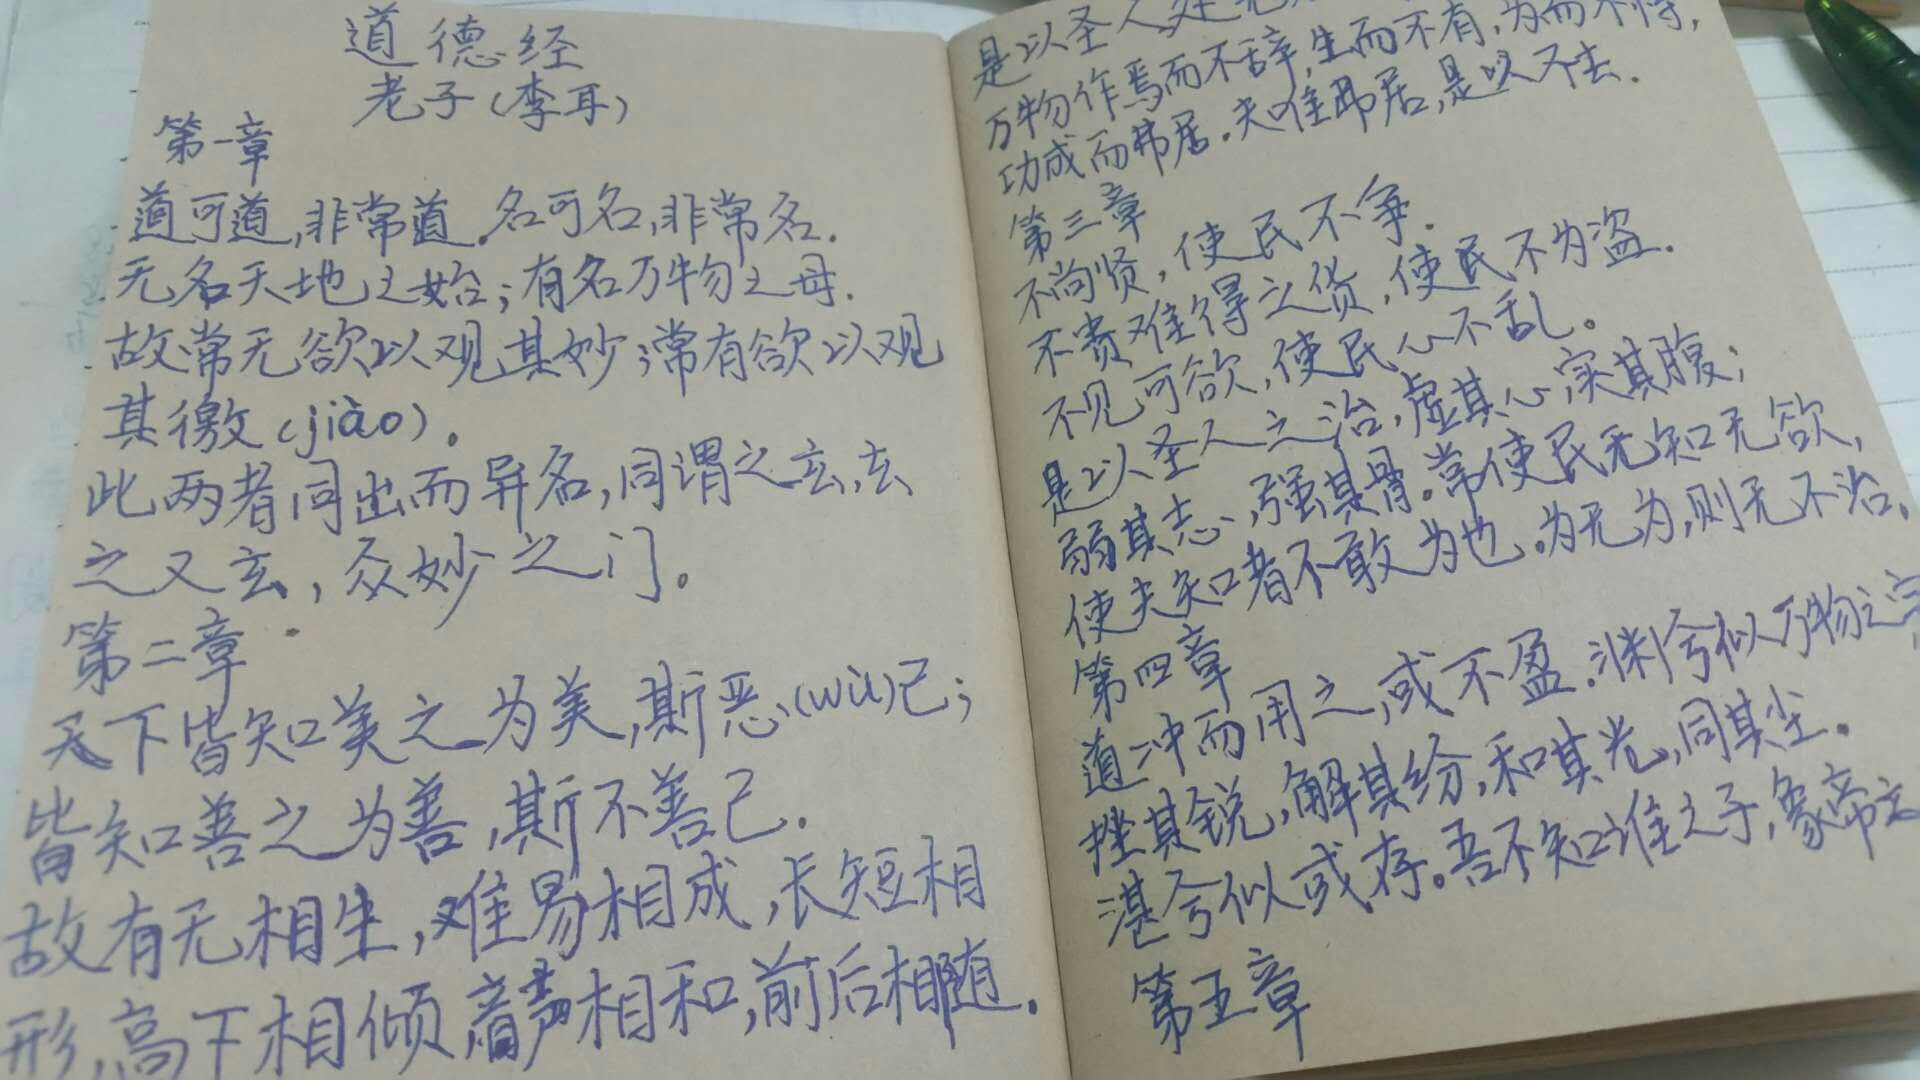 道德经
老子(李耳)
第一章
道可道,非常道.名可名,非常名.
无名天地之始;有名万物之母.
故常无欲以观其妙;常有欲以观
其徼(jiào)。
此两者同出而异名,同谓之玄,玄
之又玄,众妙之门。
第二章
天下皆知美之为美,斯恶(wù)己;
皆知善之为善,斯不善己.
故有无相生,难易相成,长短相
形,高下相倾,音声相和,前后相随.
是以圣人处无
万物作焉而不辞,生而不有,为而不恃,
功成而弗居.夫唯弗居,是以不去.
第三章
不尚贤,使民不争.
不贵难得之货,使民不为盗.
不见可欲,使民心不乱。
是以圣人之治,虚其心,实其腹;
弱其志,强其骨。常使民无知无欲,
使夫知者不敢为也.为无为,则无不治.
第四章
道冲而用之,或不盈.渊兮似万物之宗,
挫其锐,解其纷,和其光,同其尘.
湛兮似或存。吾不知谁之子,象帝之
第五章